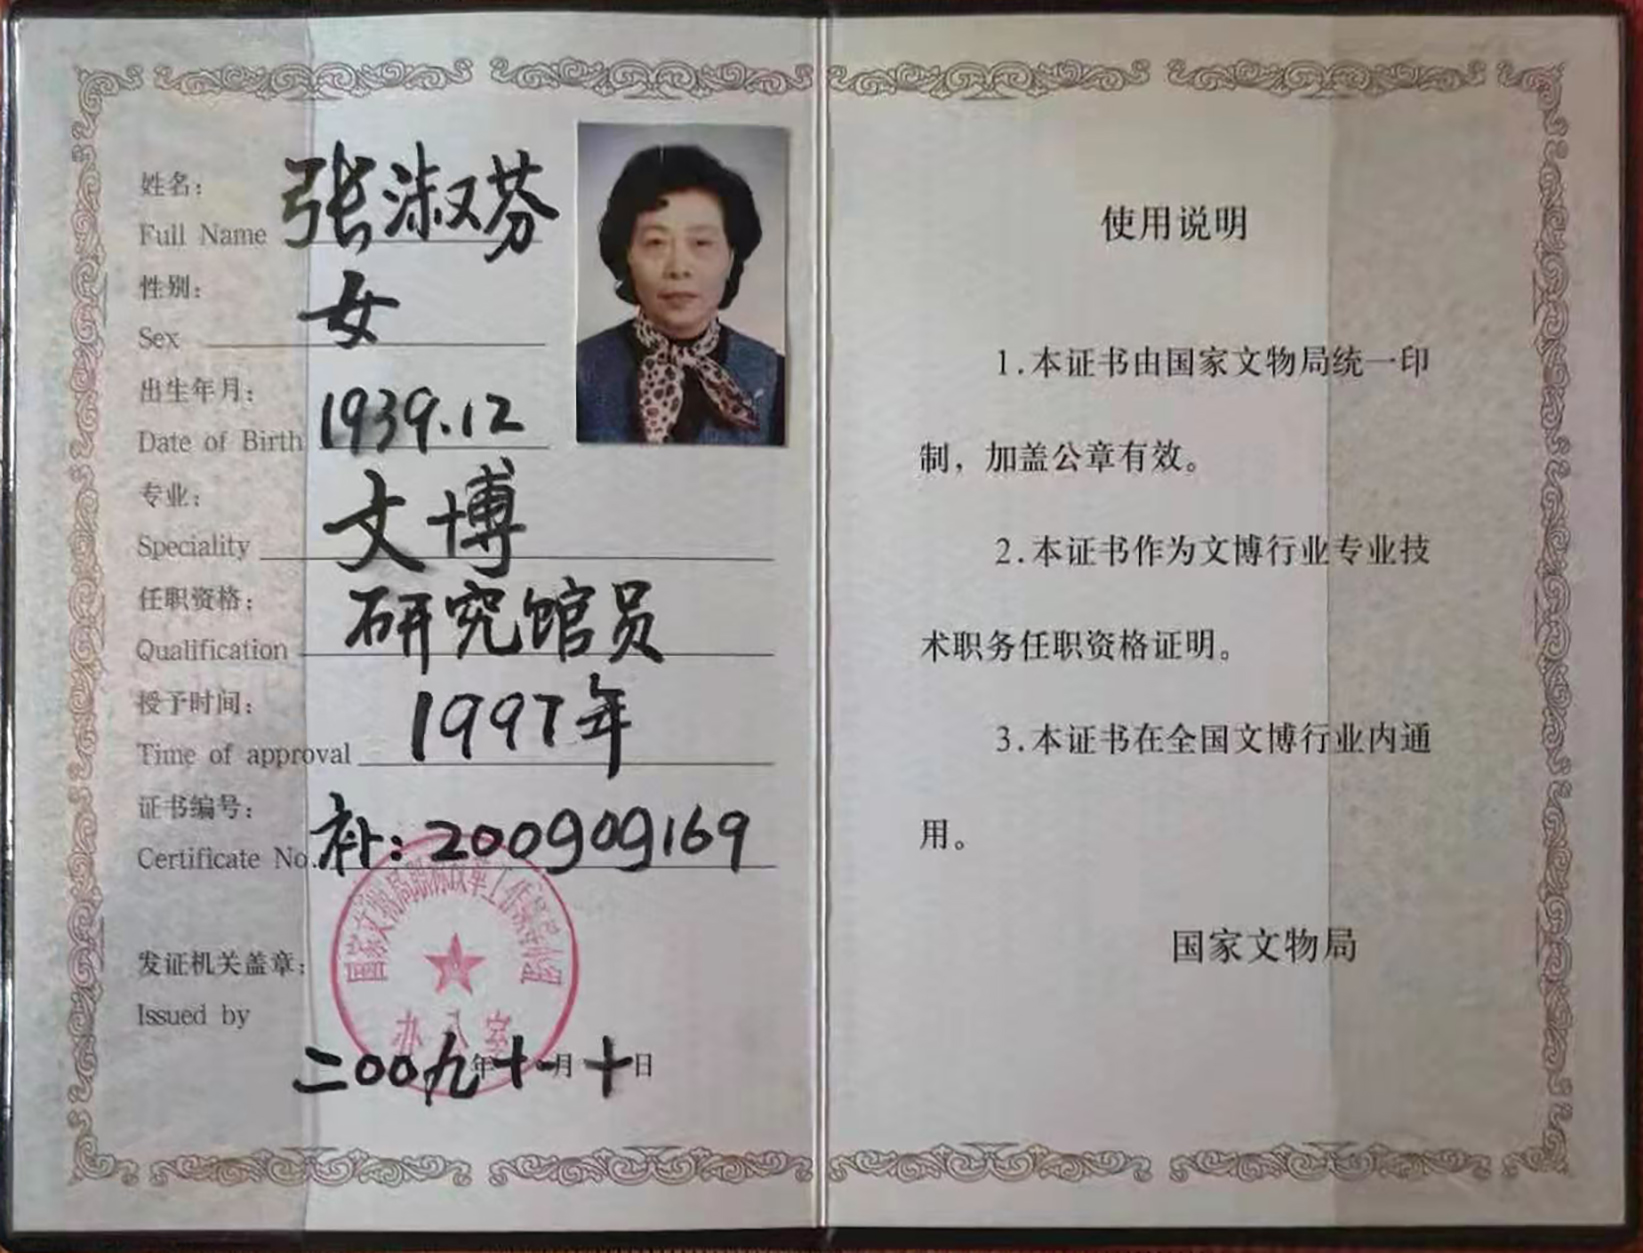 姓名：
Full Name 张淑芬
性别：
Sex 女
出生年月：
Date of Birth 1939.12
专业：
Speciality 文博
任职资格：
Qualification 研究馆员
授予时间：
Time of approval 1997年
证书编号：
Certificate No. 补：200909169
国家文物局职称改革工作领导小组
办公室
发证机关盖章：
Issued by
二〇〇九年十一月十日
使用说明
1.本证书由国家文物局统一印
制，加盖公章有效。
2.本证书作为文博行业专业技
术职务任职资格证明。
3.本证书在全国文博行业内通
用。
国家文物局